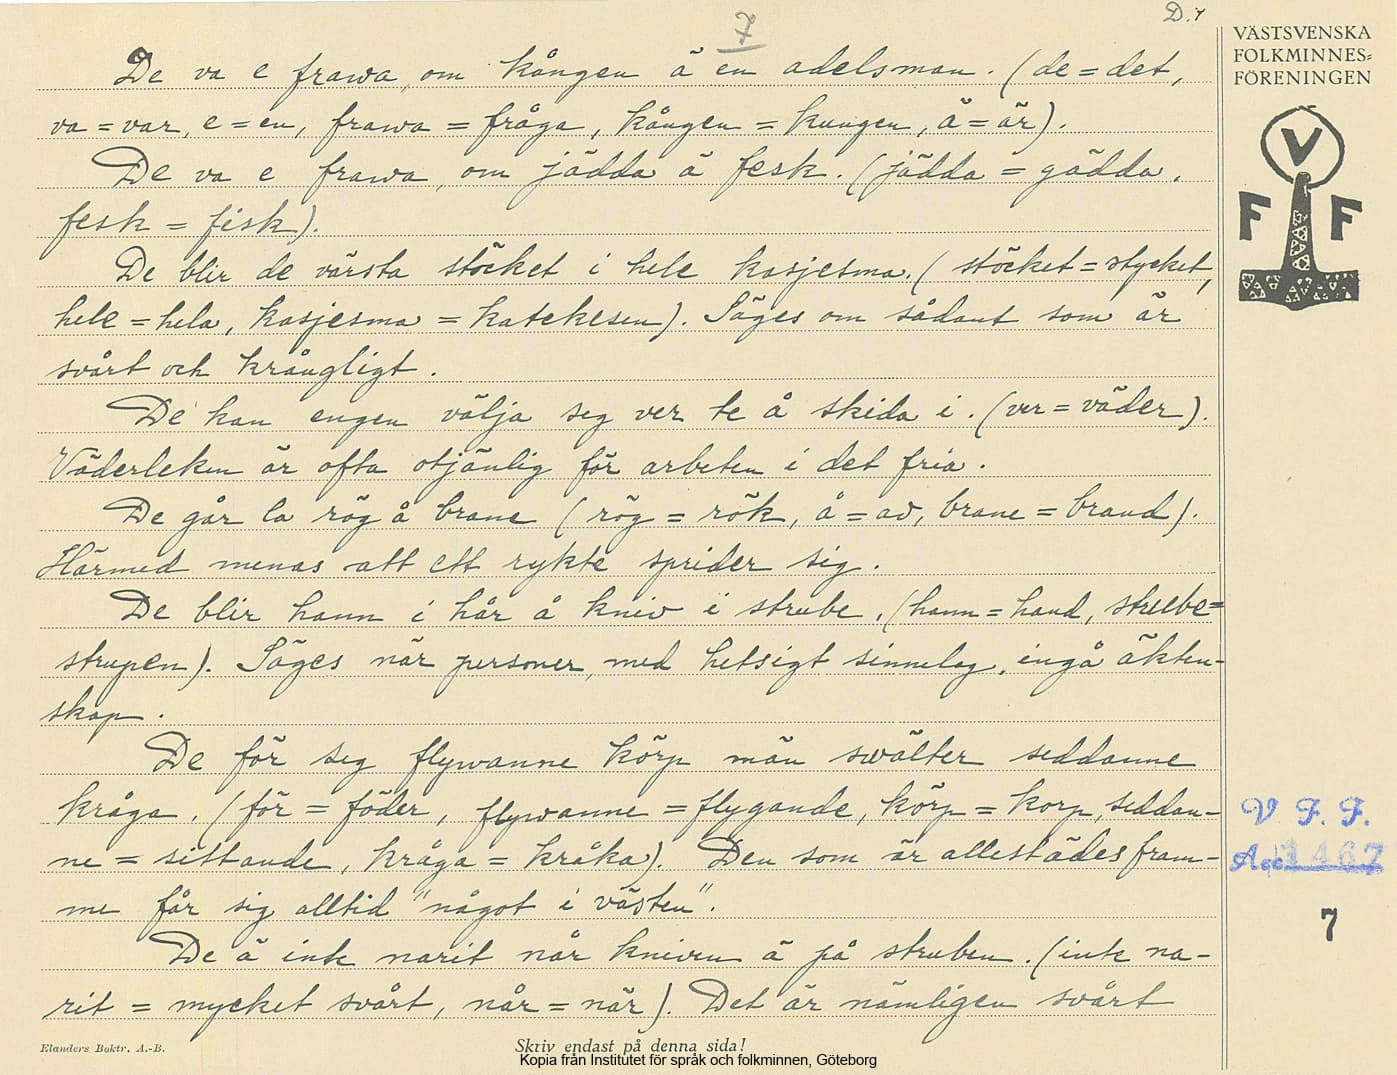 D.7
7
De va e frawa, om kången ä en adelsman. (de = det,
va = var, e = en, frawa = fråga, kången = kungen, ä = är).
De va e frawa, om jädda ä fesk. (jädda = gädda,
fesk = fisk).
De blir de värsta stöcket i hele kasjesma. (stöcket = stycket,
hele = hela, kasjesma = katekesen). Säges om sådant som är
svårt och krångligt.
De kan engen välja seg ver te å skida i. (ver = väder).
Väderleken är ofta otjänlig för arbeten i det fria.
De går la rög å brane (rög = rök, å = av, brane = brand).
Härmed menas att ett rykte sprider sig.
De blir hann i hår å kniv i strube. (hann = hand, strube =
strupen). Säges när personer, med hetsigt sinnelag, ingå äkten-
skap.
De för seg flywanne körp män swälter seddanne
kråga. (för = föder, flywanne = flygande, körp = korp, seddan-
ne = sittande, kråga = kråka). Den som är allestädes fram-
me får sig alltid "något i västen".
De ä inte narit når kniven ä på struben. (inte na-
rit = mycket svårt, når = när). Det är nämligen svårt
Elanders Boktr. A.-B.
Skriv endast på denna sida!
Kopia från Institutet för språk och folkminnen, Göteborg
VÄSTSVENSKA
FOLKMINNES-
FÖRENINGEN
V
F F
V. F. F.
Acc 1467
7